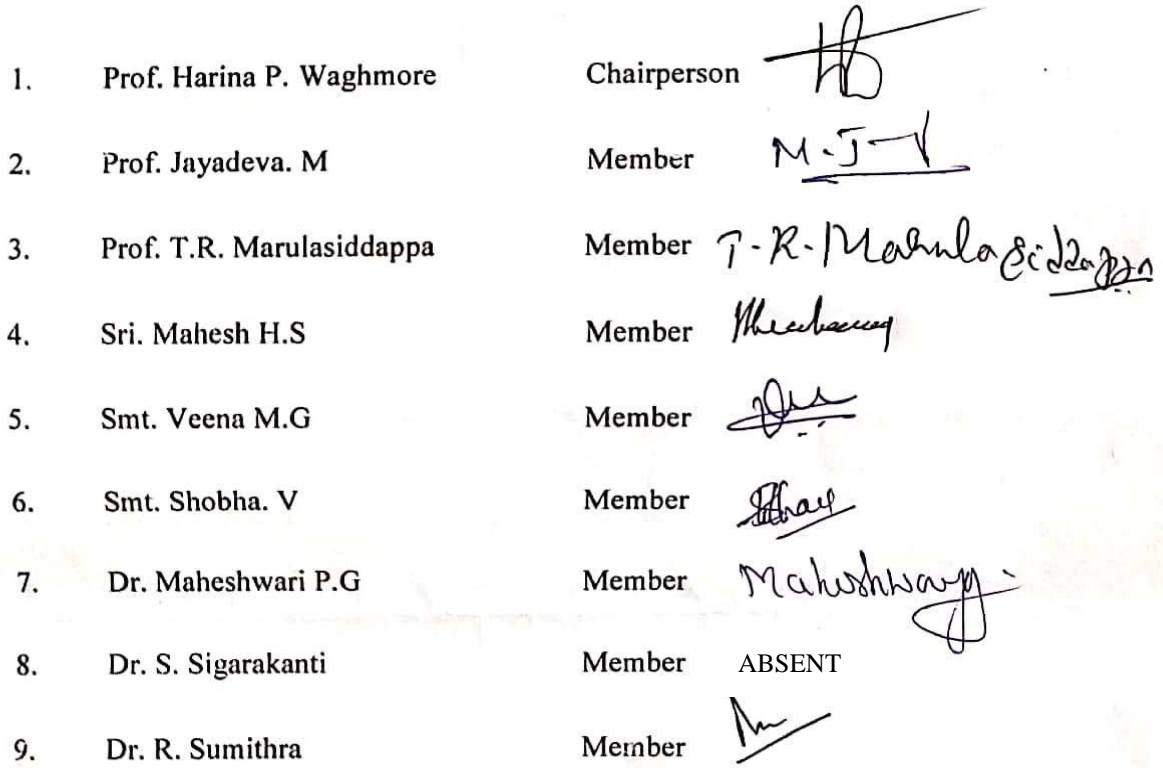 1. Prof. Harina P. Waghmore Chairperson
2. Prof. Jayadeva. M Member M.J
3. Prof. T.R. Marulasiddappa Member T.R. Marulasiddappa
4. Sri. Mahesh H.S Member
5. Smt. Veena M.G Member
6. Smt. Shobha. V Member
7. Dr. Maheshwari P.G Member Maheshwari
8. Dr. S. Sigarakanti Member ABSENT
9. Dr. R. Sumithra Member